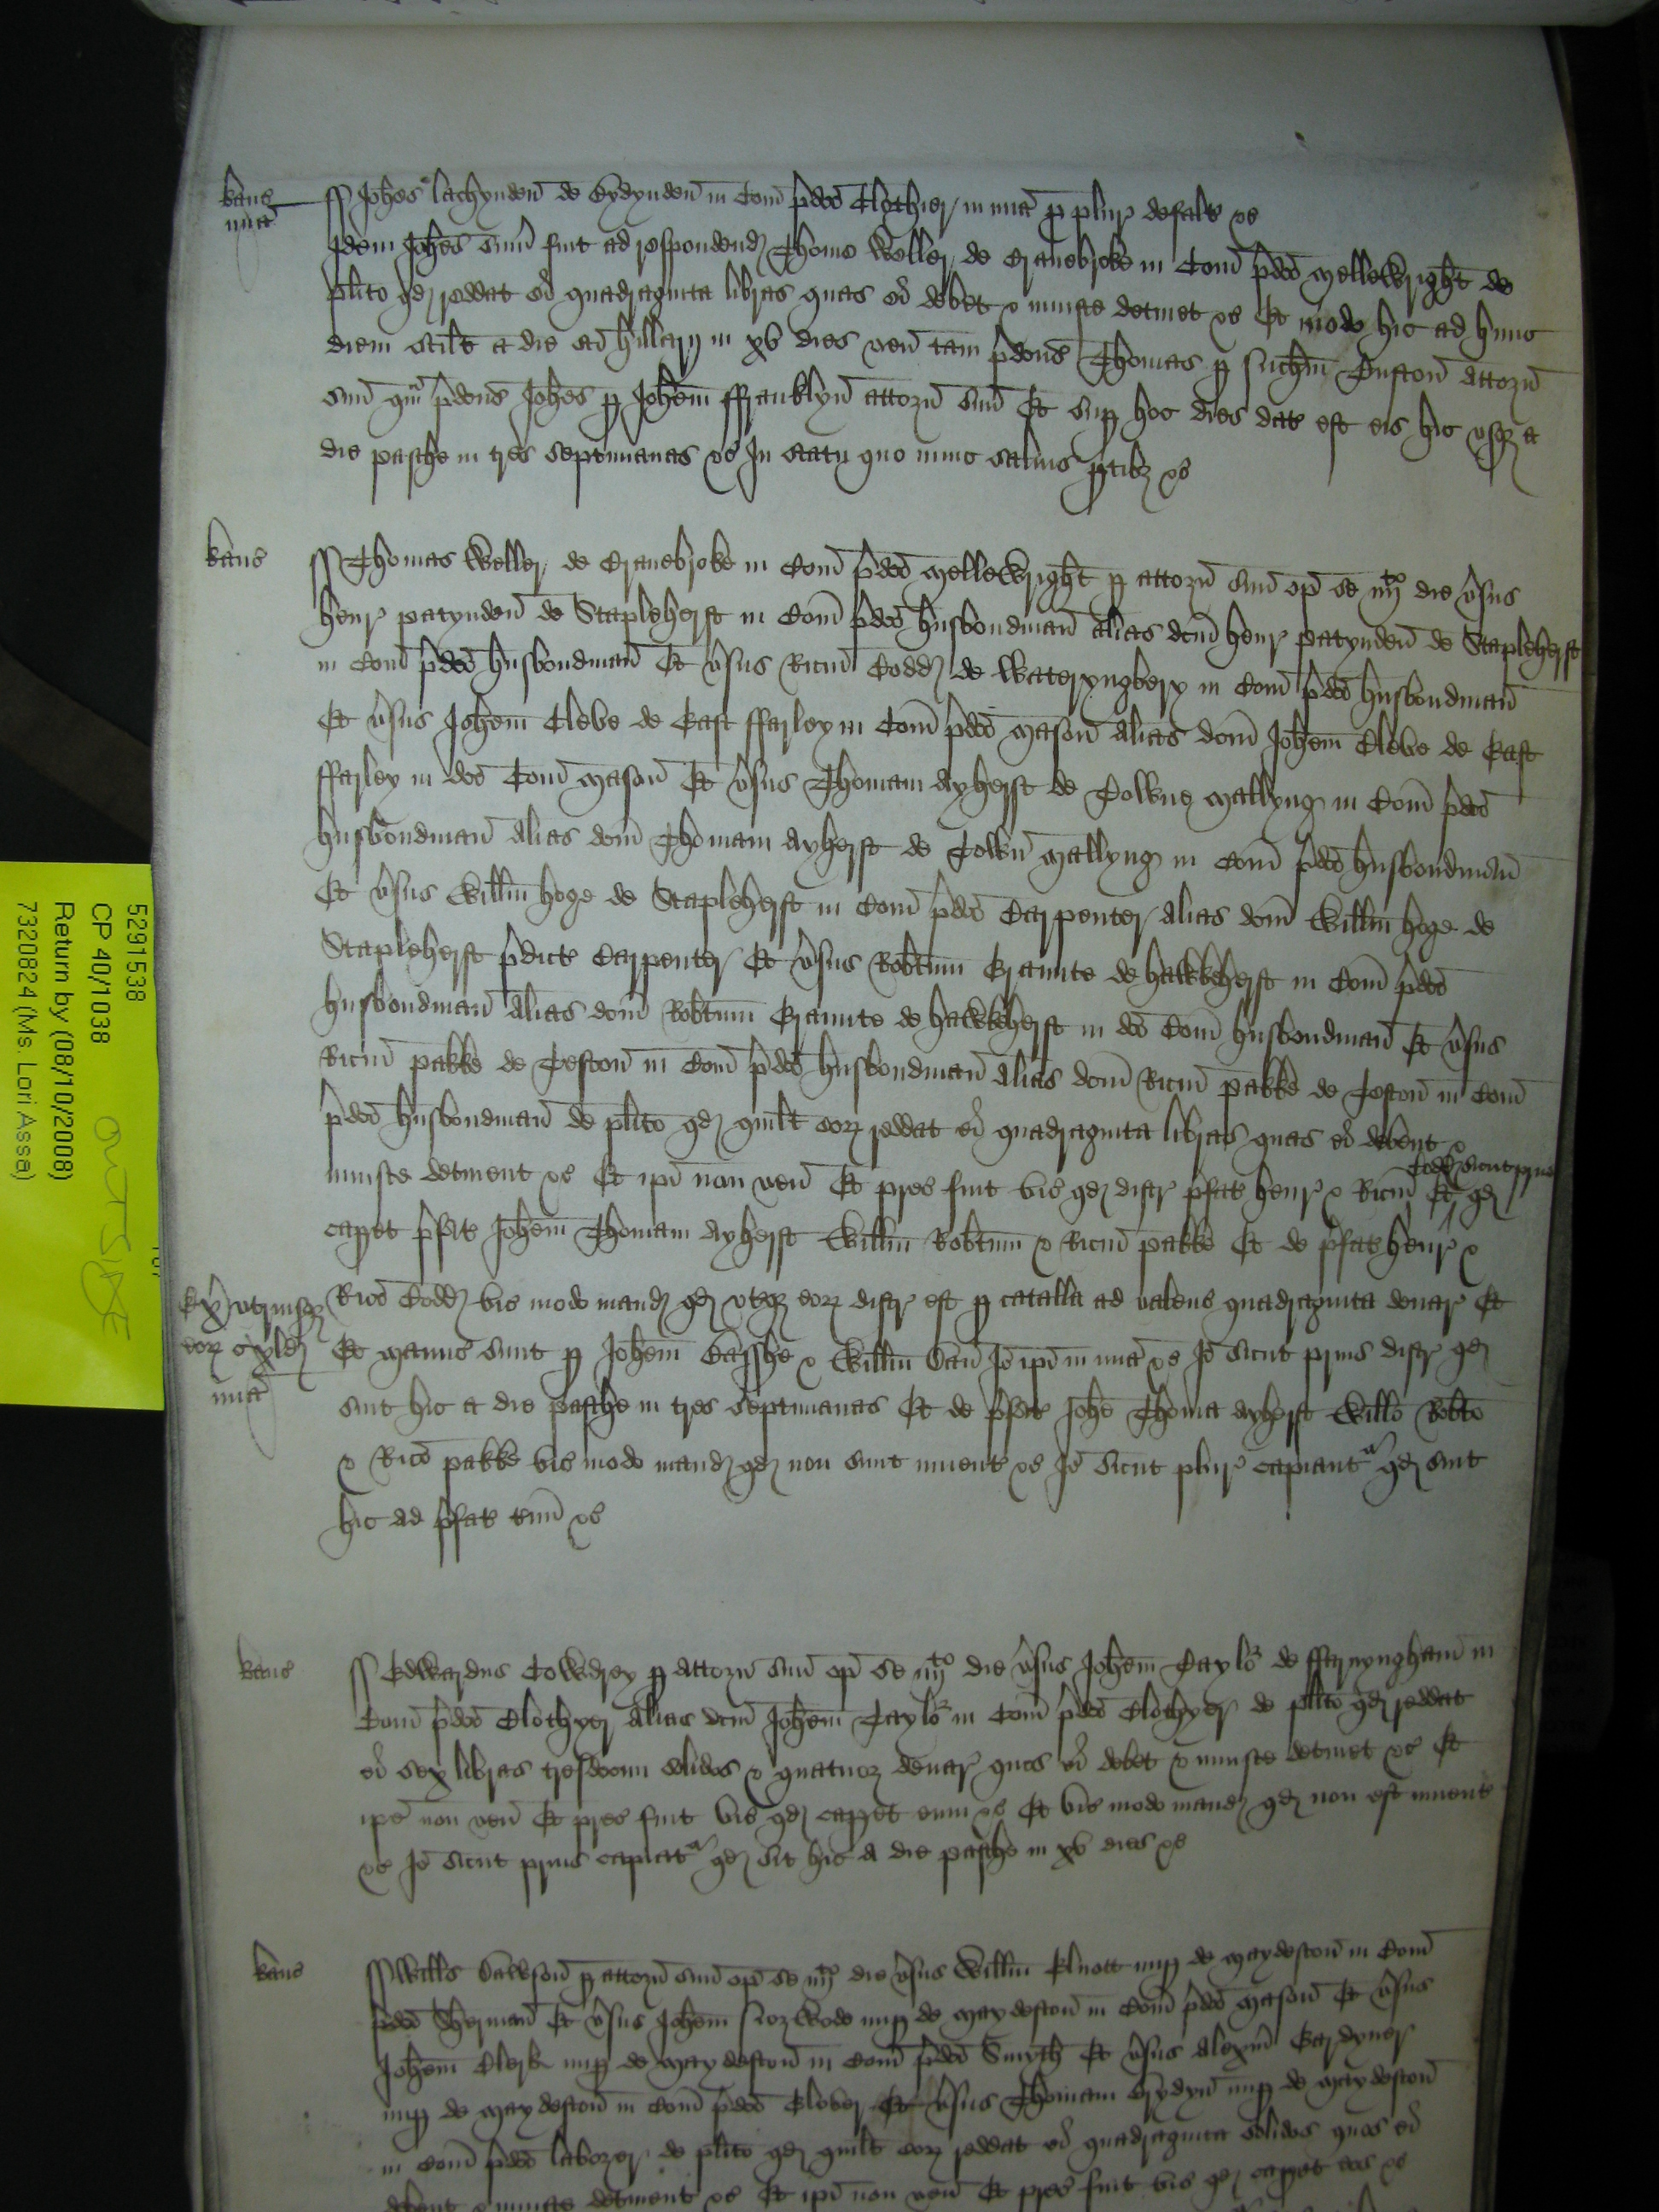 Kanc
mia
ss Johes lachynden de Bydynden in Com pdco Clothier in mia p plur defalt &c
Idem Johes sum fuit ad respondend Thome Weller de Cranebroke in Com pdco Mellewright de
plito qd reddat ei quadraginta libras quas ei debet & iniuste detinet &c Et modo hic ad hunc
diem scilt a die sci hillarij in xv dies ven tam pdcus Thomas p Custon attorn
suu qm pdcus Johes p Johem ffranklyn attorn suu Et sup hoc dies dat est eis hic usq a
die pasche in tres septimanas &c In statu quo nunc salvis ptibz &c
Kanc
ss Thomas Weller de Cranebroke in Com pdco Mellewright p attorn suu op se iiijto die vsus
henr patynden de Stapleherst in Com pdco husbondman alias dcm henr patynden de Stapleherst
in Com pdco husbondman Et vsus Ricm Codd de Wateryngbery in Com pdco husbondman
Et vsus Johem Cleve de East ffarley in Com pdco Mason alias dcm Johem Cleve de East
ffarley in dco Com Mason Et vsus Thomam Ayherst de Towne Mallyng in Com pdco
husbondman alias dcm Thomam Ayherst de Town Mallyng in Com pdco husbondman
Et vsus Willm hoge de Stapleherst in Com pdco Carpenter alias dcm Willm hoge de
Stapleherst pdict Carpenter Et vsus Robtum de hawkherst in Com pdco
husbondman alias dcm Robtum de hawkherst in dco Com husbondman Et vsus
Ricm pakke de Teston in Com pdco husbondman alias dcm Ricm pakke de Teston in Com
pdco husbondman de plito qd quilt eoz reddat ei quadraginta libras quas ei debent &
iniuste detinent &c Et ipi non ven Et prec fuit vic qd distr pfat henr & Ricm Codd sicut prius Et qd
capet pfat Johem Thomam Ayherst Willm Robtum & Ricm pakke Et de pfat henr &
Rico Codd vic modo mand qd uterqz eoz distr est p catalla ad valenc quadraginta denar Et
Ex utriusqz
eoz
mia
Et Manuc sunt p Johem & Willm Io ipi in mia &c Io sicut prius distr qd
sint hic a die pasche in tres septimanas Et de pfat Johe Thoma Ayherst Willo Robto
& Rico pakke vic modo mand qd non sunt invent &c Io sicut plur capiant qd sint
hic ad pfat tmi &c
Kanc
ss Edwardus Cowdrey p attorn suu op se iiijto die vsus Johem Taylor de ffarnyngham in
Com pdco Clothyer alias dcm Johem Taylor in Com pdco Clothyer de plito qd reddat
ei sex libras tresdecim solidos & quatuor denar quos ei debet & iniuste detinet &c Et
ipe non ven Et prec fuit vic qd capet eum &c Et vic modo mand qd non est invent
&c Io sicut prius capiat qd sit hic a die pasche in xv dies &c
Kanc
ss Wills Dawson p attorn suu op se iiijto die vsus Willm nup de Maydeston in Com
pdco Sherman Et vsus Johem Norwode nup de Maydeston in Com pdco Mason Et vsus
Johem Clerk nup de Maydeston in Com pdco Smyth Et vsus Alexm Gardyner
nup de Maydeston in Com pdco Glover Et vsus Thomam nup de Maydeston
in Com pdco laborer de plito qd quilt eoz reddat ei quadraginta solidos quos ei
debent & iniuste detinent &c Et ipi non ven Et prec fuit vic qd capet eos &c
5291538
CP 40/1038
Return by (08/10/2008)
7320824 (Ms. Lori Assa)
OUTSIZE